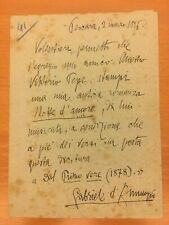 Pescara, 2 marzo
Volentieri permetto che
l'egregio mio amico, Maestro
Vittorio Pepe, stampi
una mia antica romanza
Notte d'amore, da lui
musicata, a condizione che
a piè dei versi sia posta
questa scrittura
Dal Primo vere (1878).
Gabriele d'Annunzio